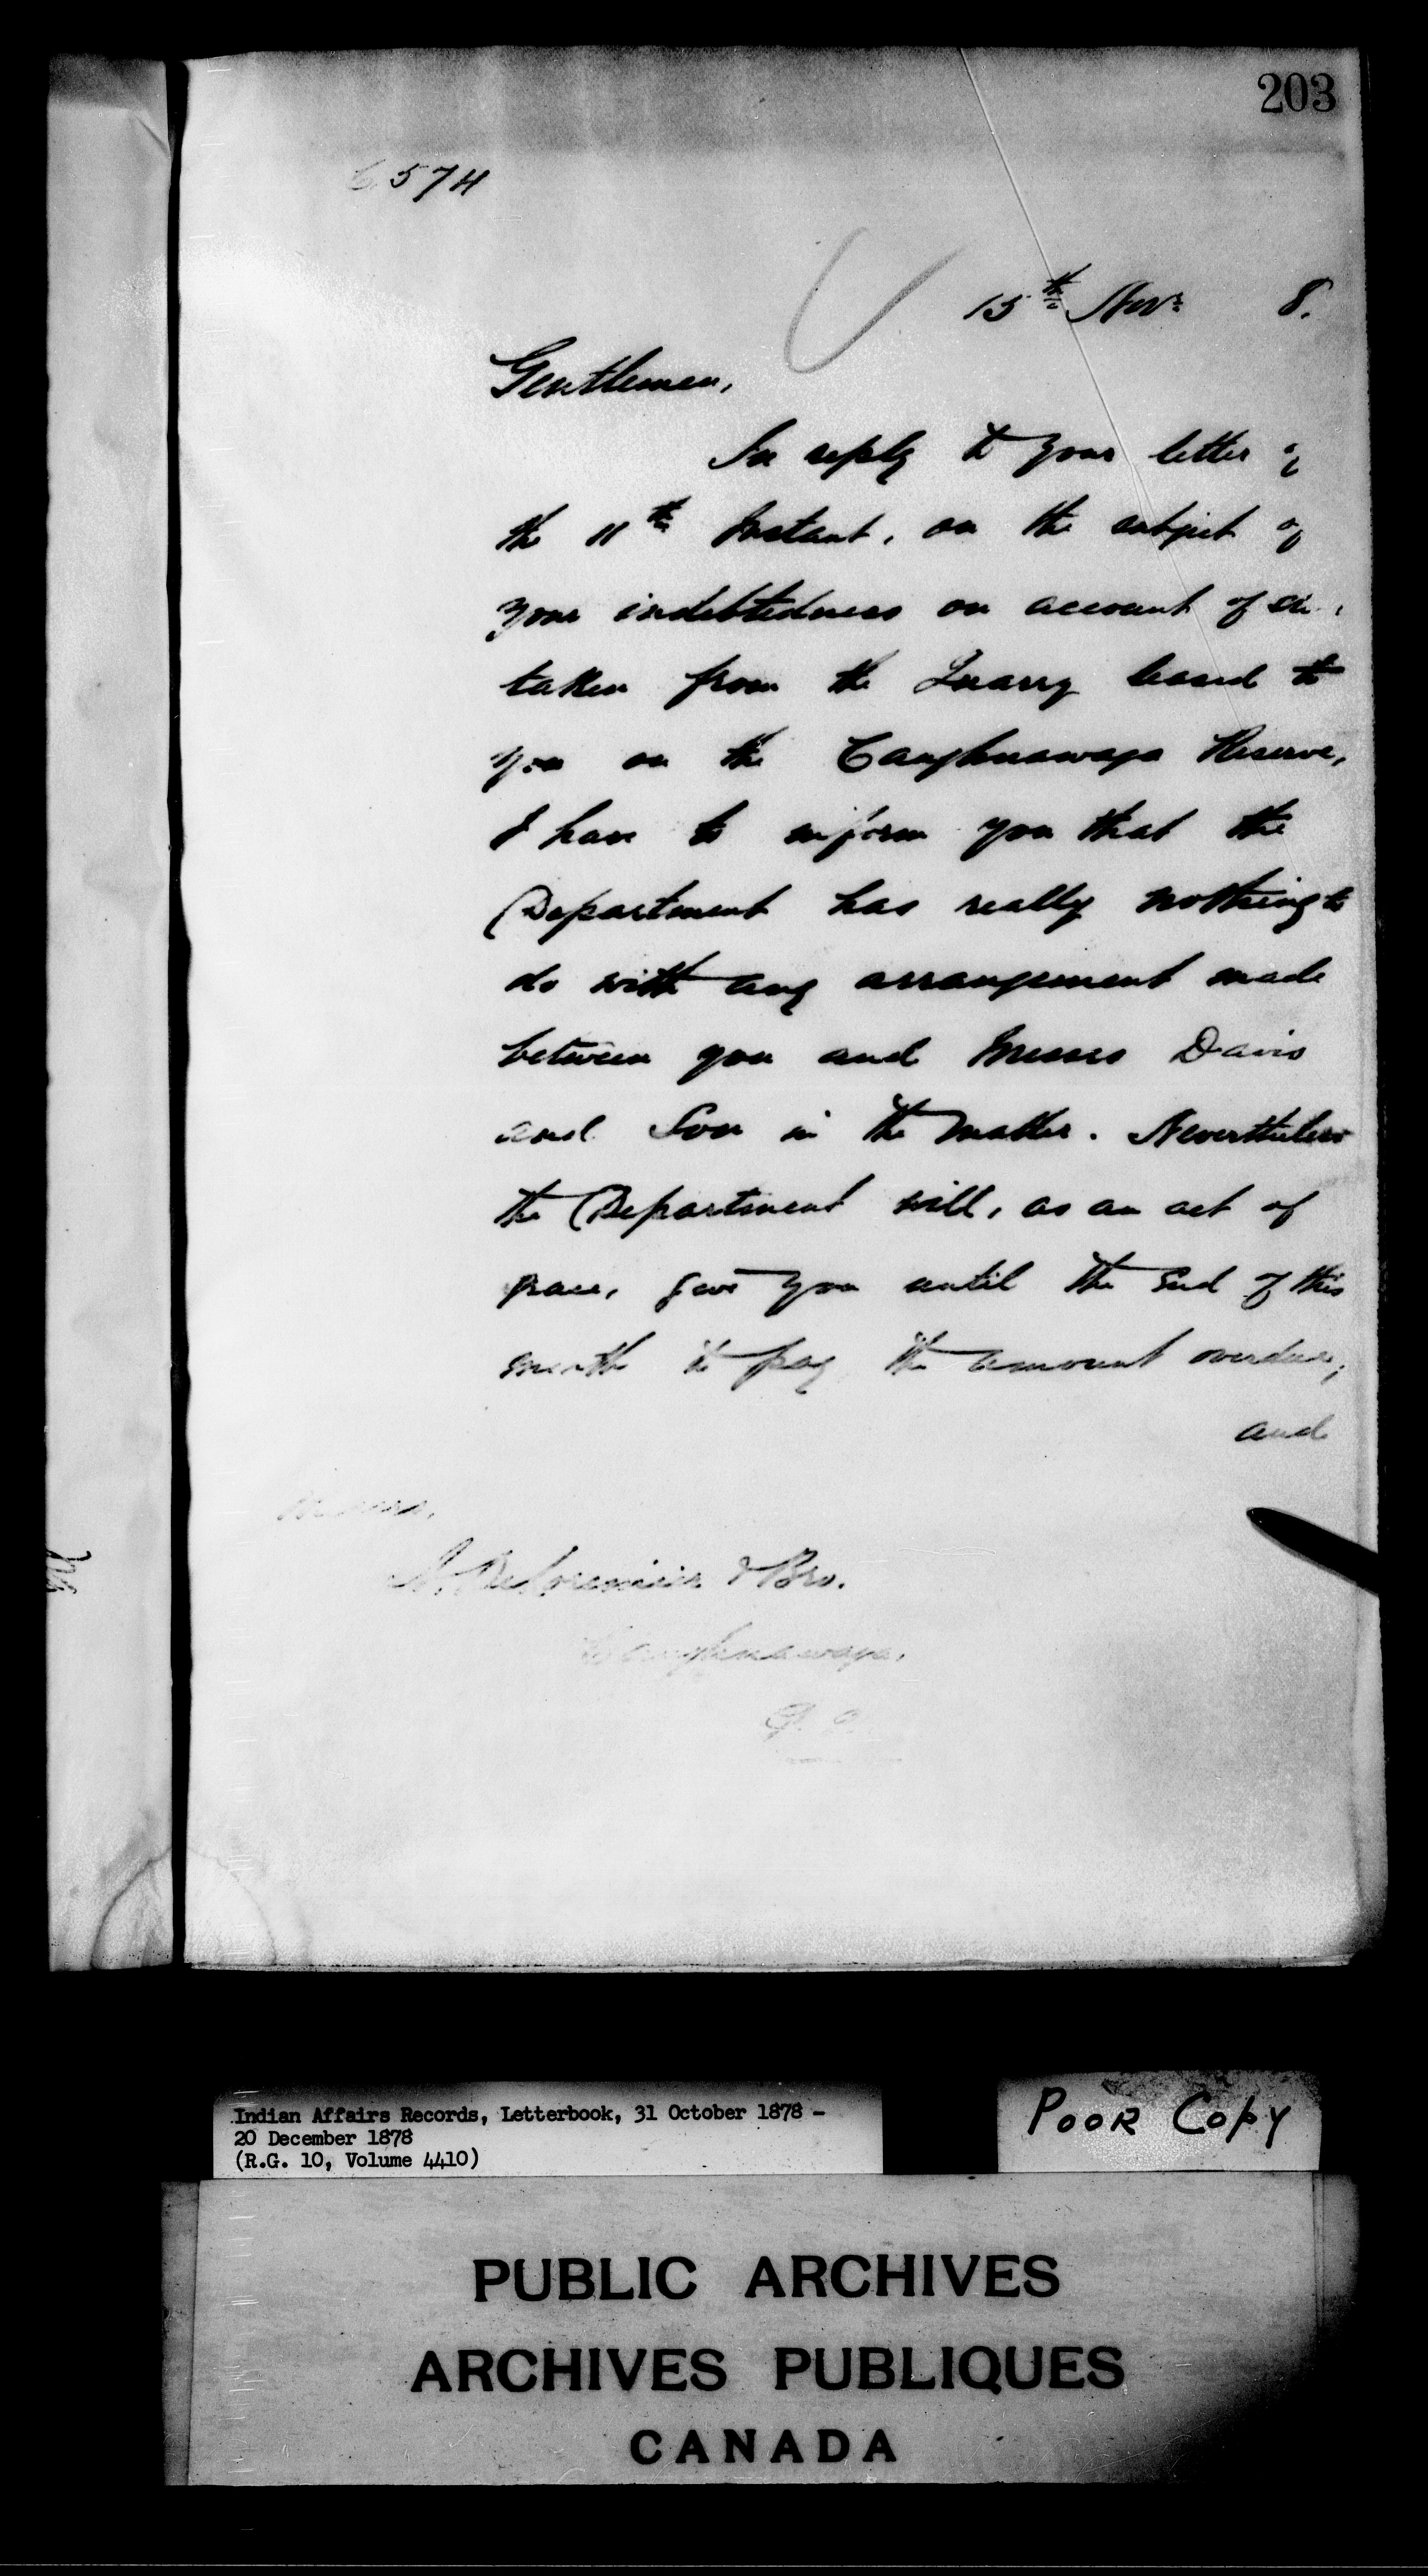 203
6574
15th Nov. 8.
Gentlemen,
In reply to your letter of
the 11th Instant, on the subject of
your indebtedness on account of
taken from the Quarry leased to
you on the Caughnawaga Reserve,
I have to inform you that the
Department has really nothing to
do with any arrangement made
between you and Messrs Davis
and Son in the matter. Nevertheless
the Department will, as an act of
grace, give you until the end of this
month to pay the amount overdue;
and
Messrs,
DeLorimier & Bro.
Caughnawaga,
P. Q.
Indian Affairs Records, Letterbook, 31 October 1878 -
20 December 1878
(R.G. 10, Volume 4410)
POOR COPY
PUBLIC ARCHIVES
ARCHIVES PUBLIQUES
CANADA